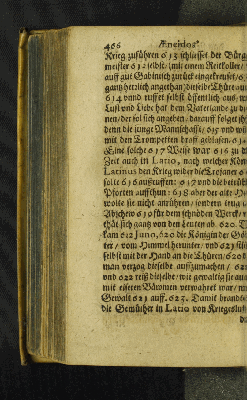 466 Æneidos
Krieg zuführen 613 schliesset der Bürg
meister 612 selbst/ mit einem Reitkoller/
auff gut Gabinisch zurück eingekreuset/
gantz herrlich angethan/ dieselbe Thüre auf
614 unnd ruffet selbst öffentlich aus/ w
Lust und Liebe hat dem Vaterlande zu die
nen/ der sol sich angeben. darauff folget ih
denn die junge Mannschafft/ 615 und wird
mit den Trompetten drauf geblasen. 61
Eine solche 617 Weise war 616 zu d
Zeit auch in Latio, nach welcher König
Latinus den Krieg wider die Trojaner
solte 616 außruffen: 617 und die betrüb
Pforten aufthun: 618 aber der alte He
wolte sie nicht anrühren/ sondern trug
Abschew 619 für dem schnöden Werck/
thät sich gantz von den Leuten ab. 620.
kam 612 Juno, 620 die Königin der Göt
ter/ vom Himmel herunter/ und 621 stieß
selbst mit der Hand an die Thüren/ 620
man verzog dieselbe auffzumachen/ 622
und 622 reiß dieselbe/ wie gewaltig sie auch
mit eisern Bäumen verwahret war/ mit
Gewalt 621 auff. 623. Damit brandte
die Gemüther in Latio von Kriegeslust